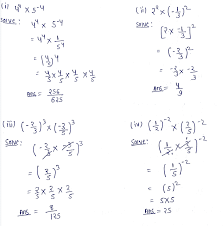 (i) 4⁴ × 5-4
Solve: 4⁴ × 5-4
= 4⁴ × 1/5⁴
= (4/5)⁴
= 4/5 × 4/5 × 4/5 × 4/5
Ans = 256/625
(ii) 2² × (-1/3)²
Solve:
(2 × -1/3)²
= (-2/3)²
= -2/3 × -2/3
Ans = 4/9
(iii) (-2/3)³ × (-3/5)³
Solve: (-2/3 × -3/5)³
= (2/5)³
= 2/5 × 2/5 × 2/5
Ans = 8/125
Solve:
= (1/5)⁻²
= (5)²
= 5×5
Ans = 25